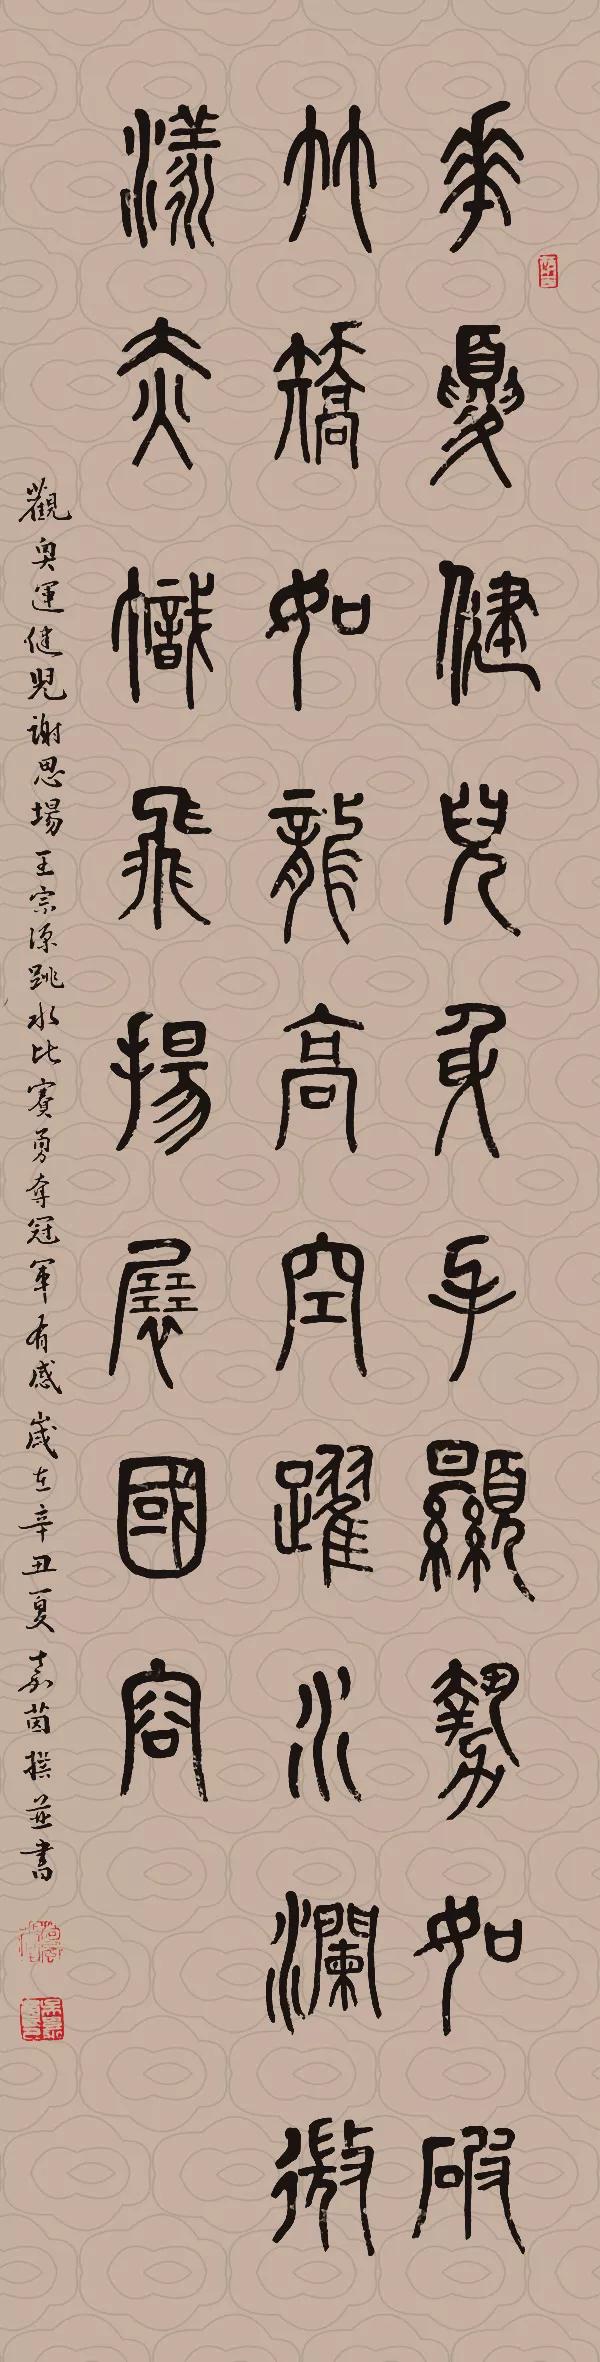 華夏健兒身手顯勢如破
竹矯如龍高空躍水瀾微
漾赤幟飛揚展國容
觀奧運健兒謝思埸王宗源跳水比賽勇奪冠軍有感歲在辛丑夏嘉茵撰並書